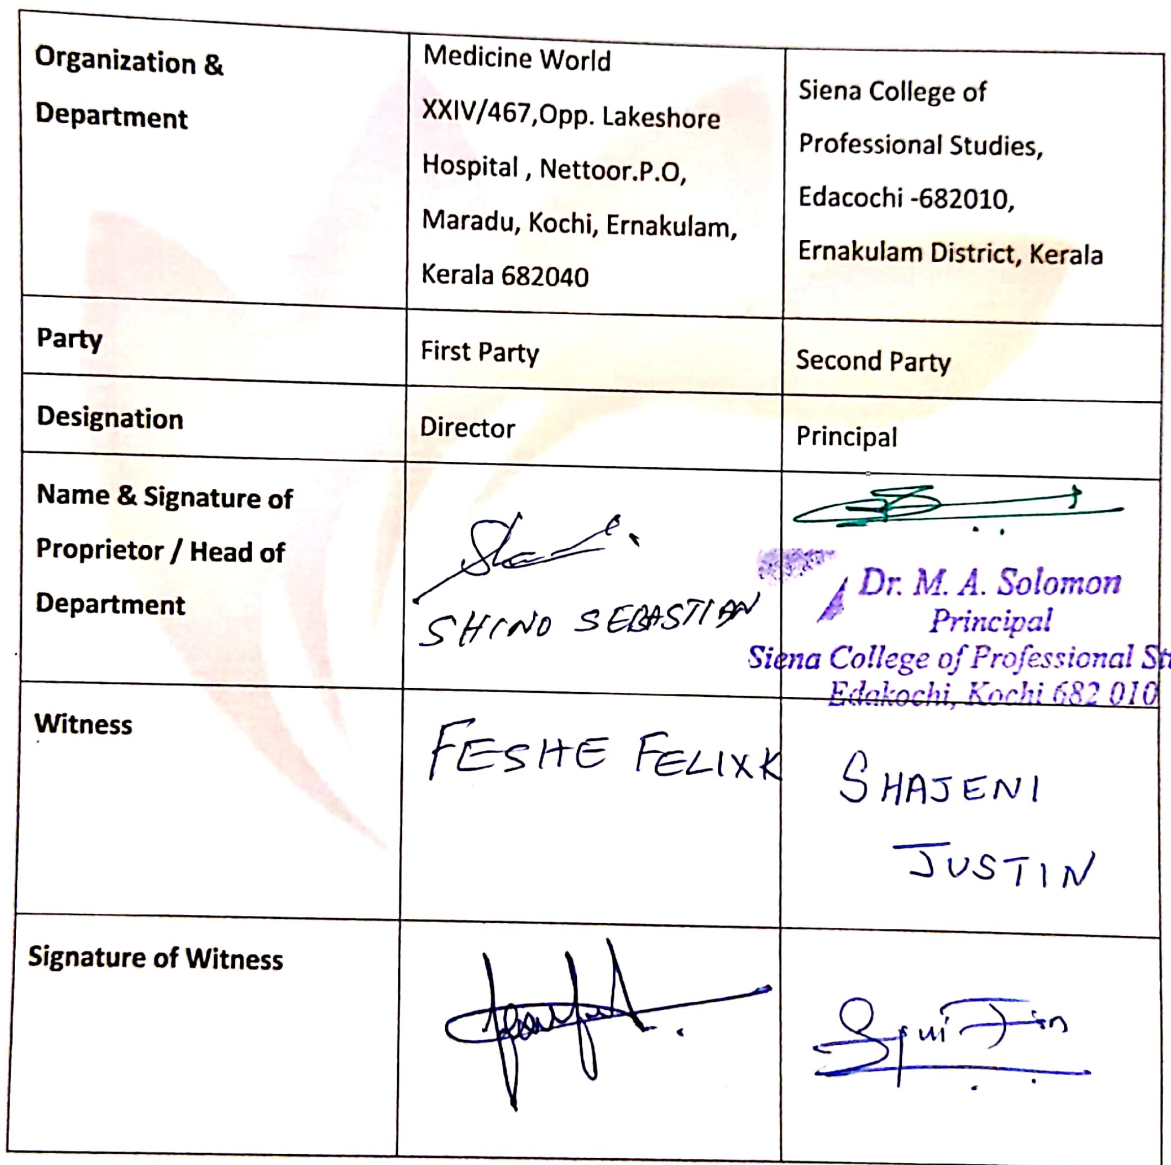 Organization &
Department
Medicine World
XXIV/467,Opp. Lakeshore
Hospital , Nettoor.P.O,
Maradu, Kochi, Ernakulam,
Kerala 682040
Siena College of
Professional Studies,
Edacochi -682010,
Ernakulam District, Kerala
Party
First Party
Second Party
Designation
Director
Principal
Name & Signature of
Proprietor / Head of
Department
SHINO SEBASTIAN
Dr. M. A. Solomon
Principal
Siena College of Professional
Edakochi, Kochi 682 010
Witness
FESHE FELIX K
SHAJENI
JUSTIN
Signature of Witness